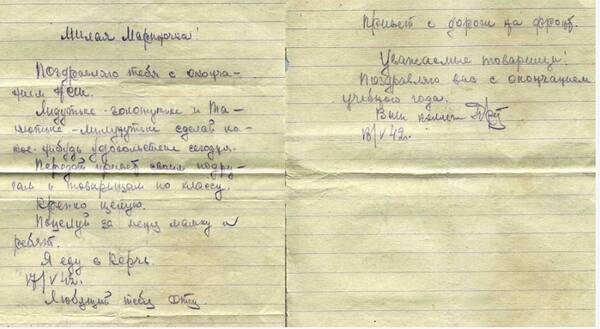 Милая Мариночка!
Поздравляю тебя с оконча-
нием НСШ.
Лидутке-голопупке и Та-
нютке-лилипутке сделай ка-
кое-нибудь удовольствие сегодня.
Передай привет своим подру-
гам и товарищам по классу.
Крепко целую.
Поцелуй за меня мамку и
ребят.
Я еду в Керчь.
17/V 42г.
Любящий тебя Отец
Привет с дороги на фронт.
Уважаемые товарищи!
Поздравляю вас с окончанием
учебного года.
Ваш
18/V 42г.